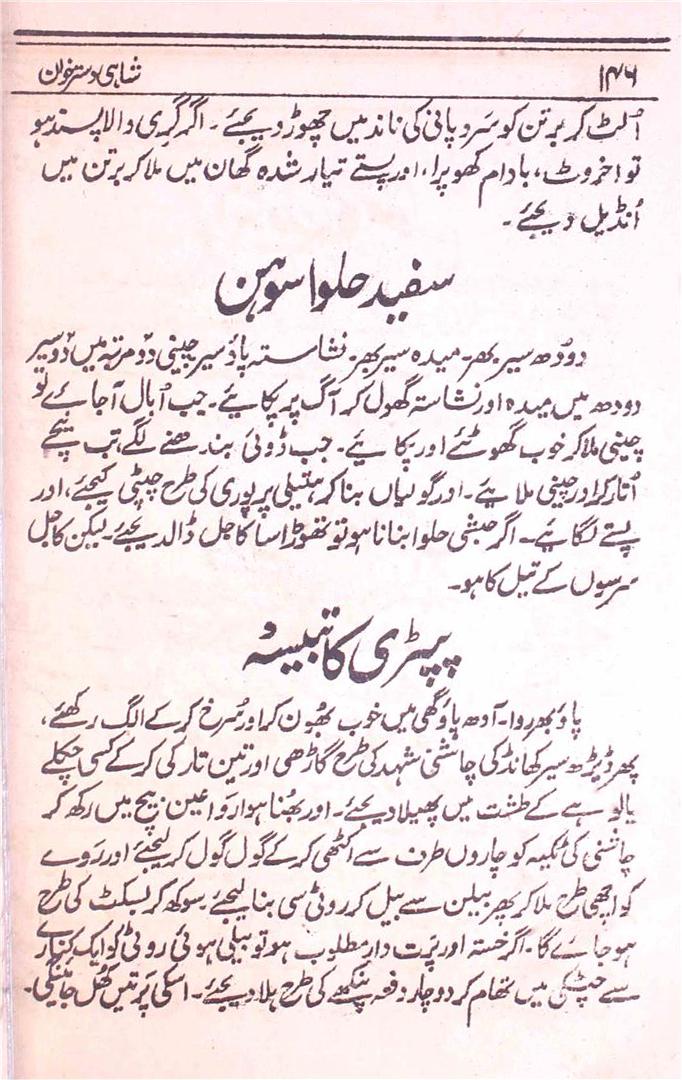 ۱۴۶ شاہی دسترخوان
اُلٹ کر برتن کو سرد پانی کی ناند میں چھوڑ دیجئے۔ اگر گری والا پسند ہو
تو اخروٹ، بادام کھوپرا، اور پستے تیار شدہ گھان میں ملا کر برتن میں
اُنڈیل دیجئے۔
سفید حلوا سوہن
دودھ سیر بھر۔ میدہ سیر بھر۔ نشاستہ پاؤ سیر چینی دو مرتبہ میں دو سیر
دودھ میں میدہ اور نشاستہ گھول کر آگ پر پکائیے۔ جب اُبال آجائے تو
چینی ملا کر خوب گھوٹئے اور پکائیے۔ جب ڈوئی بندھنے لگے، تب نیچے
اُتار کر اور چینی ملائیے۔ اور گولیاں بنا کر ہتیلی پر پوری کی طرح چپٹی کیجئے، اور
پستے لگائیے۔ اگر حبشی حلوا بنانا ہو تو تھوڑا سا کاجل ڈالدیجئے۔ لیکن کاجل
سرسوں کے تیل کا ہو۔
پپڑی کا
پاؤ بھر روا۔ آدھ پاؤ گھی میں خوب بھُون کر اور سُرخ کر کے الگ رکھئے،
پھر ڈیڑھ سیر کھانڈ کی چاشنی شہد کی طرح گاڑھی اور تین تار کی کر کے کسی چکلے
یا لوہے کے طشت میں پھیلا دیجئے۔ اور بھُنا ہوا رَوا عین بیچ میں رکھ کر
چاشنی کی ٹکیہ کو چاروں طرف سے اکٹھی کر کے گول گول کر لیجئے اور رَوے
کو اچھی طرح ملا کر پھر بیلن سے بیل کر روٹی سی بنا لیجئے۔ سوکھ کر بسکٹ کی طرح
ہو جائے گا۔ اگر خستہ اور پَرت دار مطلوب ہو تو بیلی ہوئی روٹی کو ایک کنارے
سے چٹکی میں تھام کر دو چار دفعہ پنکھے کی طرح ہلا دیجئے۔ اسکی پَرتیں کھُل جائینگی۔